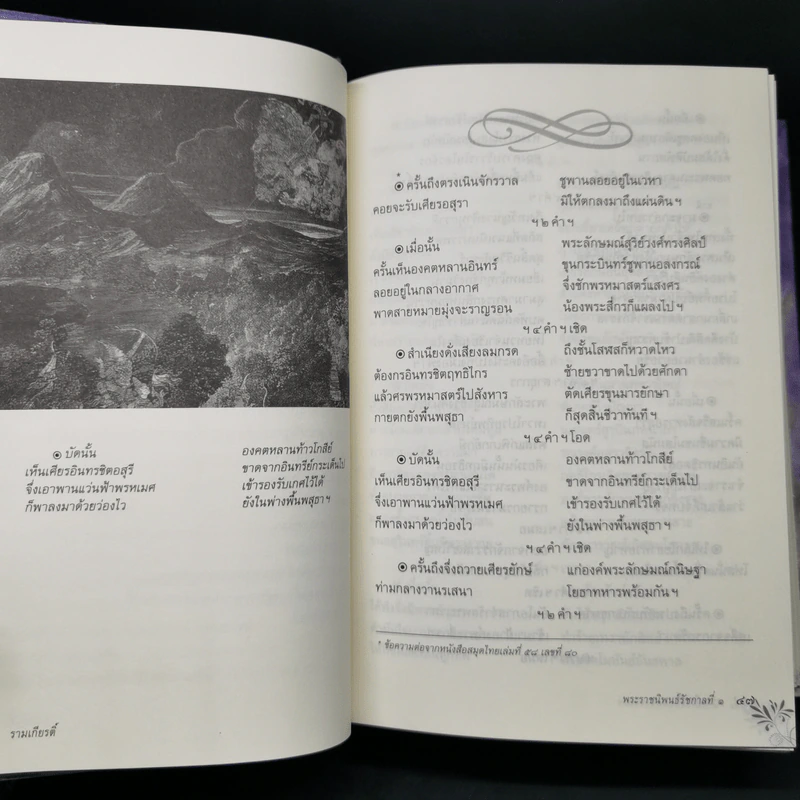 ๏ บัดนั้น องคตหลานท้าวโกสีย์
เห็นเศียรอินทรชิตอสุรี ขาดจากอินทรีย์กระเด็นไป
จึ่งเอาพานแว่นฟ้าพรหเมศ เข้ารองรับเกศไว้ได้
ก็พาลงมาด้วยว่องไว ยังในพ่างพื้นพสุธา ฯ
รามเกียรติ์
* ๏ ครั้นถึงตรงเนินจักรวาล ชูพานลอยอยู่ในเวหา
คอยจะรับเศียรอสุรา มิให้ตกลงมาถึงแผ่นดิน ฯ
ฯ ๒ คำ ฯ
๏ เมื่อนั้น พระลักษมณ์สุริย์วงศ์ทรงศิลป์
ครั้นเห็นองคตหลานอินทร์ ขุนกระบินทร์ชูพานอลงกรณ์
ลอยอยู่ในกลางอากาศ จึ่งชักพรหมาสตร์แสงศร
พาดสายหมายมุ่งจะราญรอน น้องพระสี่กรก็แผลงไป ฯ
ฯ ๔ คำ ฯ เชิด
๏ สำเนียงดั่งเสียงลมกรด ถึงชั้นโสฬสก็หวาดไหว
ต้องกรอินทรชิตฤทธิไกร ซ้ายขวาขาดไปด้วยศักดา
แล้วศรพรหมาสตร์ไปสังหาร ตัดเศียรขุนมารยักษา
กายตกยังพื้นพสุธา ก็สุดสิ้นชีวาทันที ฯ
ฯ ๔ คำ ฯ โอด
๏ บัดนั้น องคตหลานท้าวโกสีย์
เห็นเศียรอินทรชิตอสุรี ขาดจากอินทรีย์กระเด็นไป
จึ่งเอาพานแว่นฟ้าพรหเมศ เข้ารองรับเกศไว้ได้
ก็พาลงมาด้วยว่องไว ยังในพ่างพื้นพสุธา ฯ
ฯ ๔ คำ ฯ เชิด
๏ ครั้นถึงจึ่งถวายเศียรยักษ์ แก่องค์พระลักษมณ์กนิษฐา
ท่ามกลางวานรเสนา โยธาทหารพร้อมกัน ฯ
ฯ ๒ คำ ฯ
* ข้อความต่อจากหนังสือสมุดไทยเล่มที่ ๕๘ เลขที่ ๘๐
พระราชนิพนธ์รัชกาลที่ ๑ ๔๗